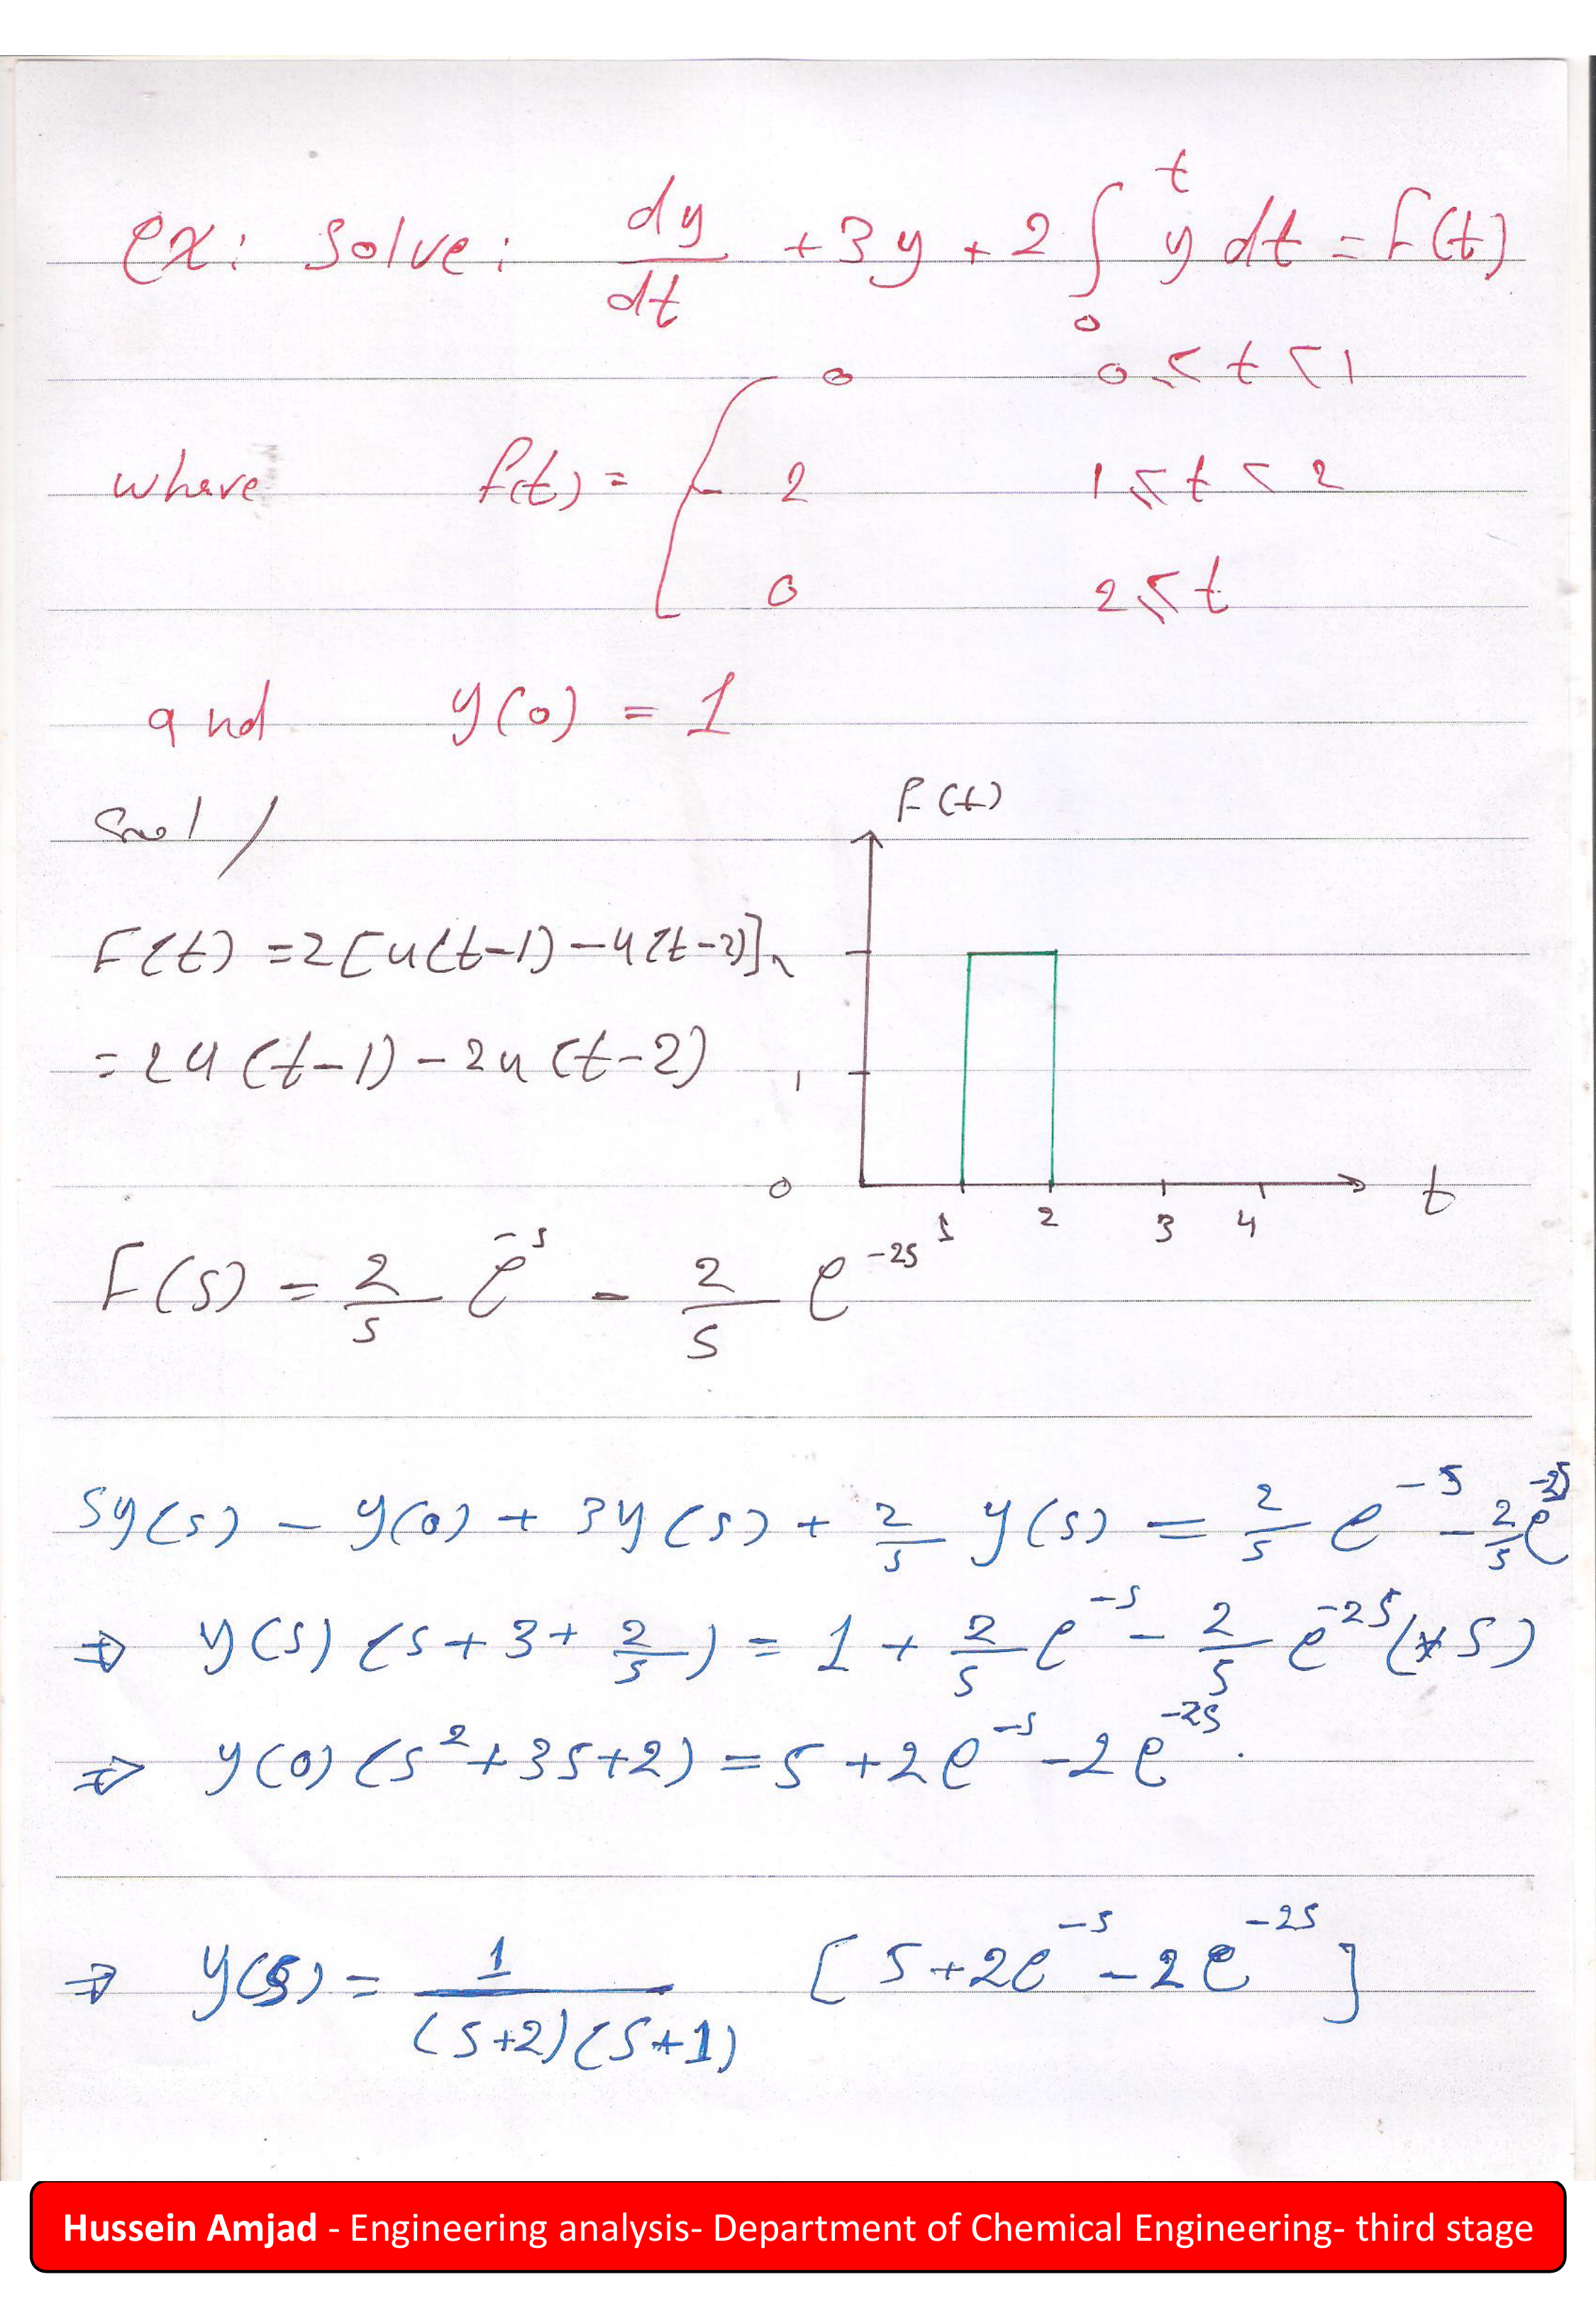 ex: solve: dy/dt + 3y + 2 ∫₀ᵗ y dt = F(t)
where f(t) = { 0    0 ≤ t < 1
2    1 ≤ t < 2
0    2 ≤ t
and y(0) = 1
Sol /
F(t)
F(t) = 2[u(t-1) - u(t-2)]
2
= 2u(t-1) - 2u(t-2)
1
0
t
1 2 3 4
F(s) = 2/s e^-s - 2/s e^-2s
sy(s) - y(0) + 3y(s) + 2/s y(s) = 2/s e^-s - 2/s e^-2s
⇒ y(s) (s + 3 + 2/s) = 1 + 2/s e^-s - 2/s e^-2s (*s)
⇒ y(0) (s² + 3s + 2) = s + 2e^-s - 2e^-2s.
⇒ y(s) = 1/(s+2)(s+1) [s + 2e^-s - 2e^-2s]
Hussein Amjad - Engineering analysis- Department of Chemical Engineering- third stage